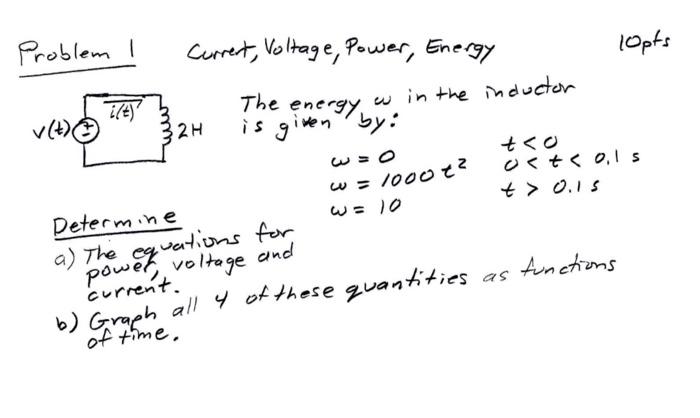 Problem 1 Current, Voltage, Power, Energy 10pts
v(t) i(t) 2H
The energy w in the inductor
is given by:
w = 0 t < 0
w = 1000 t² 0 < t < 0.1 s
w = 10 t > 0.1 s
Determine
a) The equations for
power, voltage and
current.
b) Graph all 4 of these quantities as functions
of time.